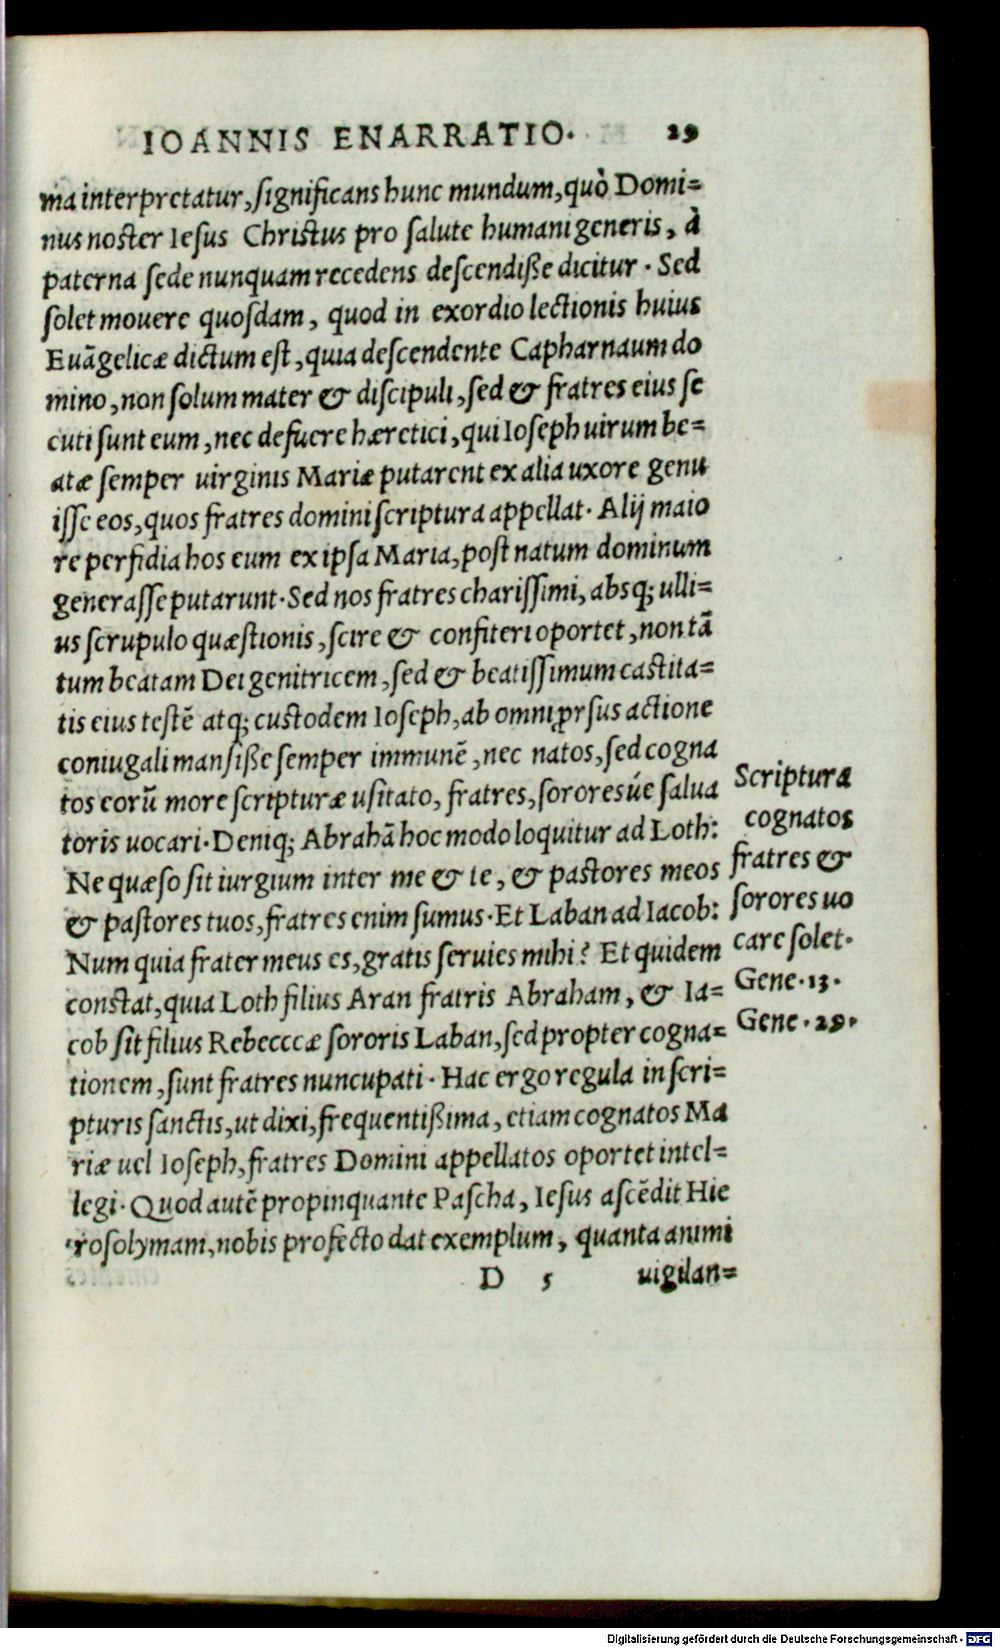 IOANNIS ENARRATIO. 29
ma interpretatur, ſignificans hunc mundum, quò Domi=
nus noſter Ieſus Chriſtus pro ſalute humani generis, à
paterna ſede nunquam recedens deſcendiſſe dicitur. Sed
ſolet mouere quoſdam, quod in exordio lectionis huius
Euãgelicæ dictum eſt, quia deſcendente Capharnaum do
mino, non ſolum mater & diſcipuli, ſed & fratres eius ſe
cuti ſunt eum, nec defuere hæretici, qui Ioſeph uirum be=
atæ ſemper uirginis Mariæ putarent ex alia uxore genu
iſſe eos, quos fratres domini ſcriptura appellat. Alij maio
re perfidia hos eum ex ipſa Maria, poſt natum dominum
generaſſe putarunt. Sed nos fratres chariſſimi, absq; ulli=
us ſcrupulo quæſtionis, ſcire & confiteri oportet, non tã
tum beatam Dei genitricem, ſed & beatiſſimum caſtita=
tis eius teſtẽ atq; cuſtodem Ioſeph, ab omni ꝓrſus actione
coniugali manſiſſe ſemper immunẽ, nec natos, ſed cogna
tos eorũ more ſcripturæ uſitato, fratres, ſororesúe ſalua
toris uocari. Deniq; Abrahã hoc modo loquitur ad Loth:
Ne quæſo ſit iurgium inter me & te, & paſtores meos
& paſtores tuos, fratres enim ſumus. Et Laban ad Iacob:
Num quia frater meus es, gratis ſeruies mihi? Et quidem
conſtat, quia Loth filius Aran fratris Abraham, & Ia=
cob ſit filius Rebeccæ ſororis Laban, ſed propter cogna=
tionem, ſunt fratres nuncupati. Hac ergo regula in ſcri=
pturis ſanctis, ut dixi, frequentiſſima, etiam cognatos Ma
riæ uel Ioſeph, fratres Domini appellatos oportet intel=
legi. Quod autẽ propinquante Paſcha, Ieſus aſcẽdit Hie
roſolymam, nobis profecto dat exemplum, quanta animi
D 5 uigilan=
Scriptura
cognatos
fratres &
ſorores uo
care ſolet.
Gene. 13.
Gene. 29.
Digitalisierung gefördert durch die Deutsche Forschungsgemeinschaft - DFG